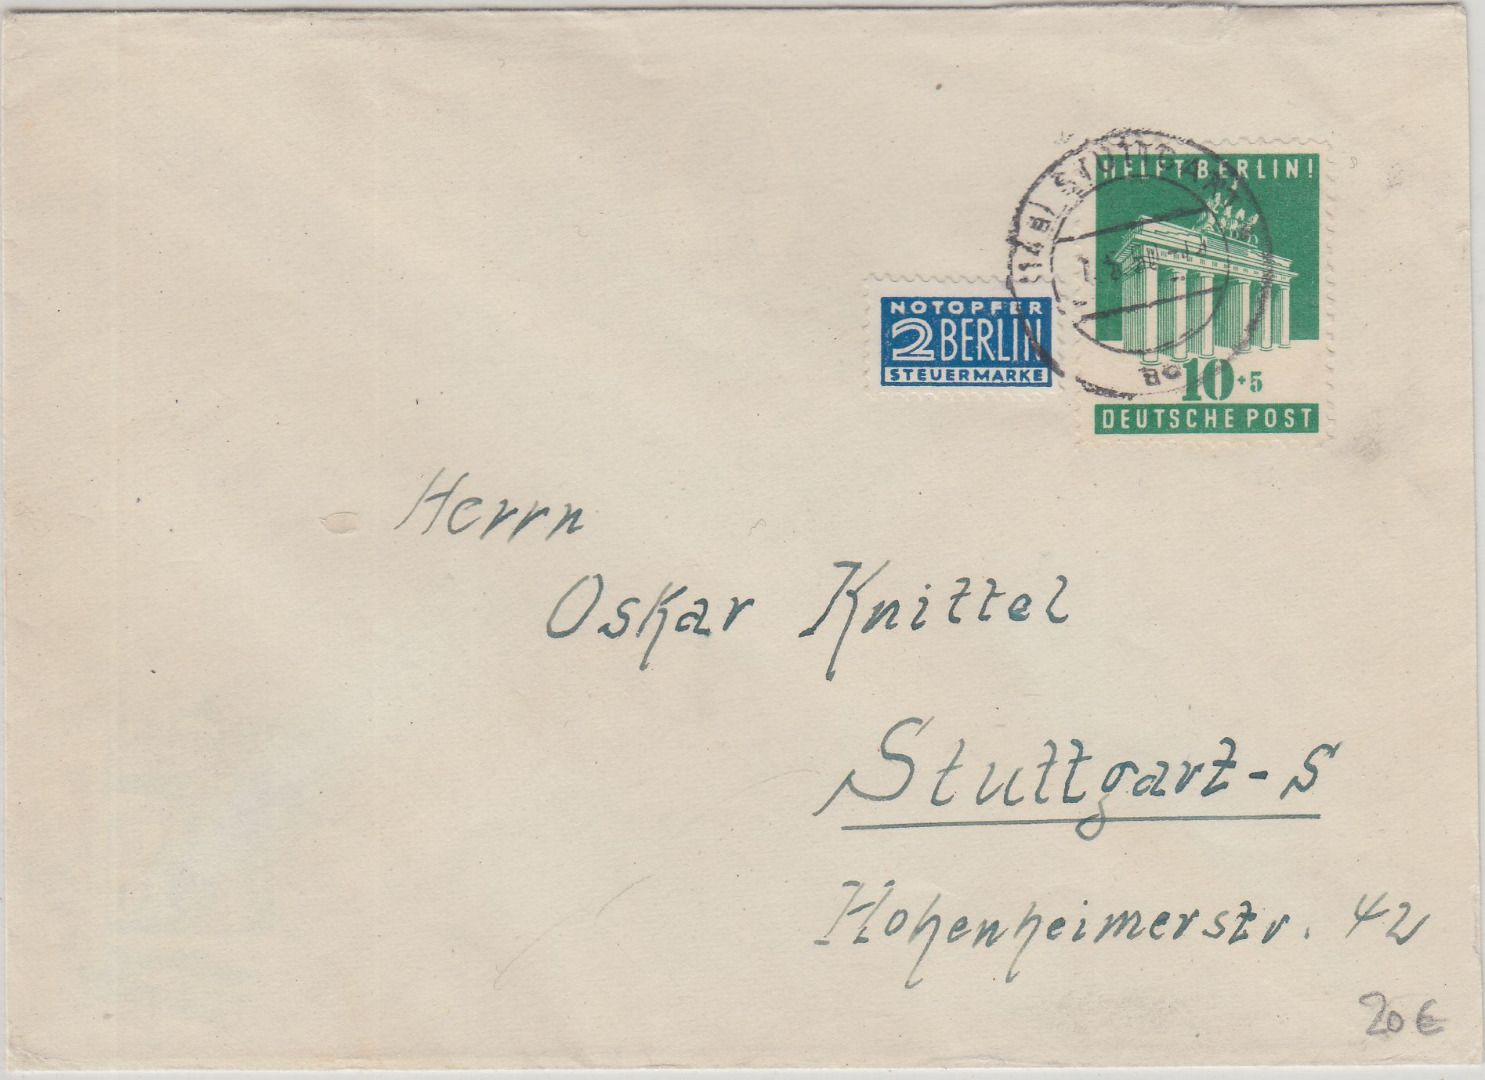 HELFT BERLIN!
(14a) STUTTGART
NOTOPFER
2 BERLIN
STEUERMARKE
10+5
DEUTSCHE POST
Herrn
Oskar Knittel
Stuttgart-S
Hohenheimerstr. 42
20€